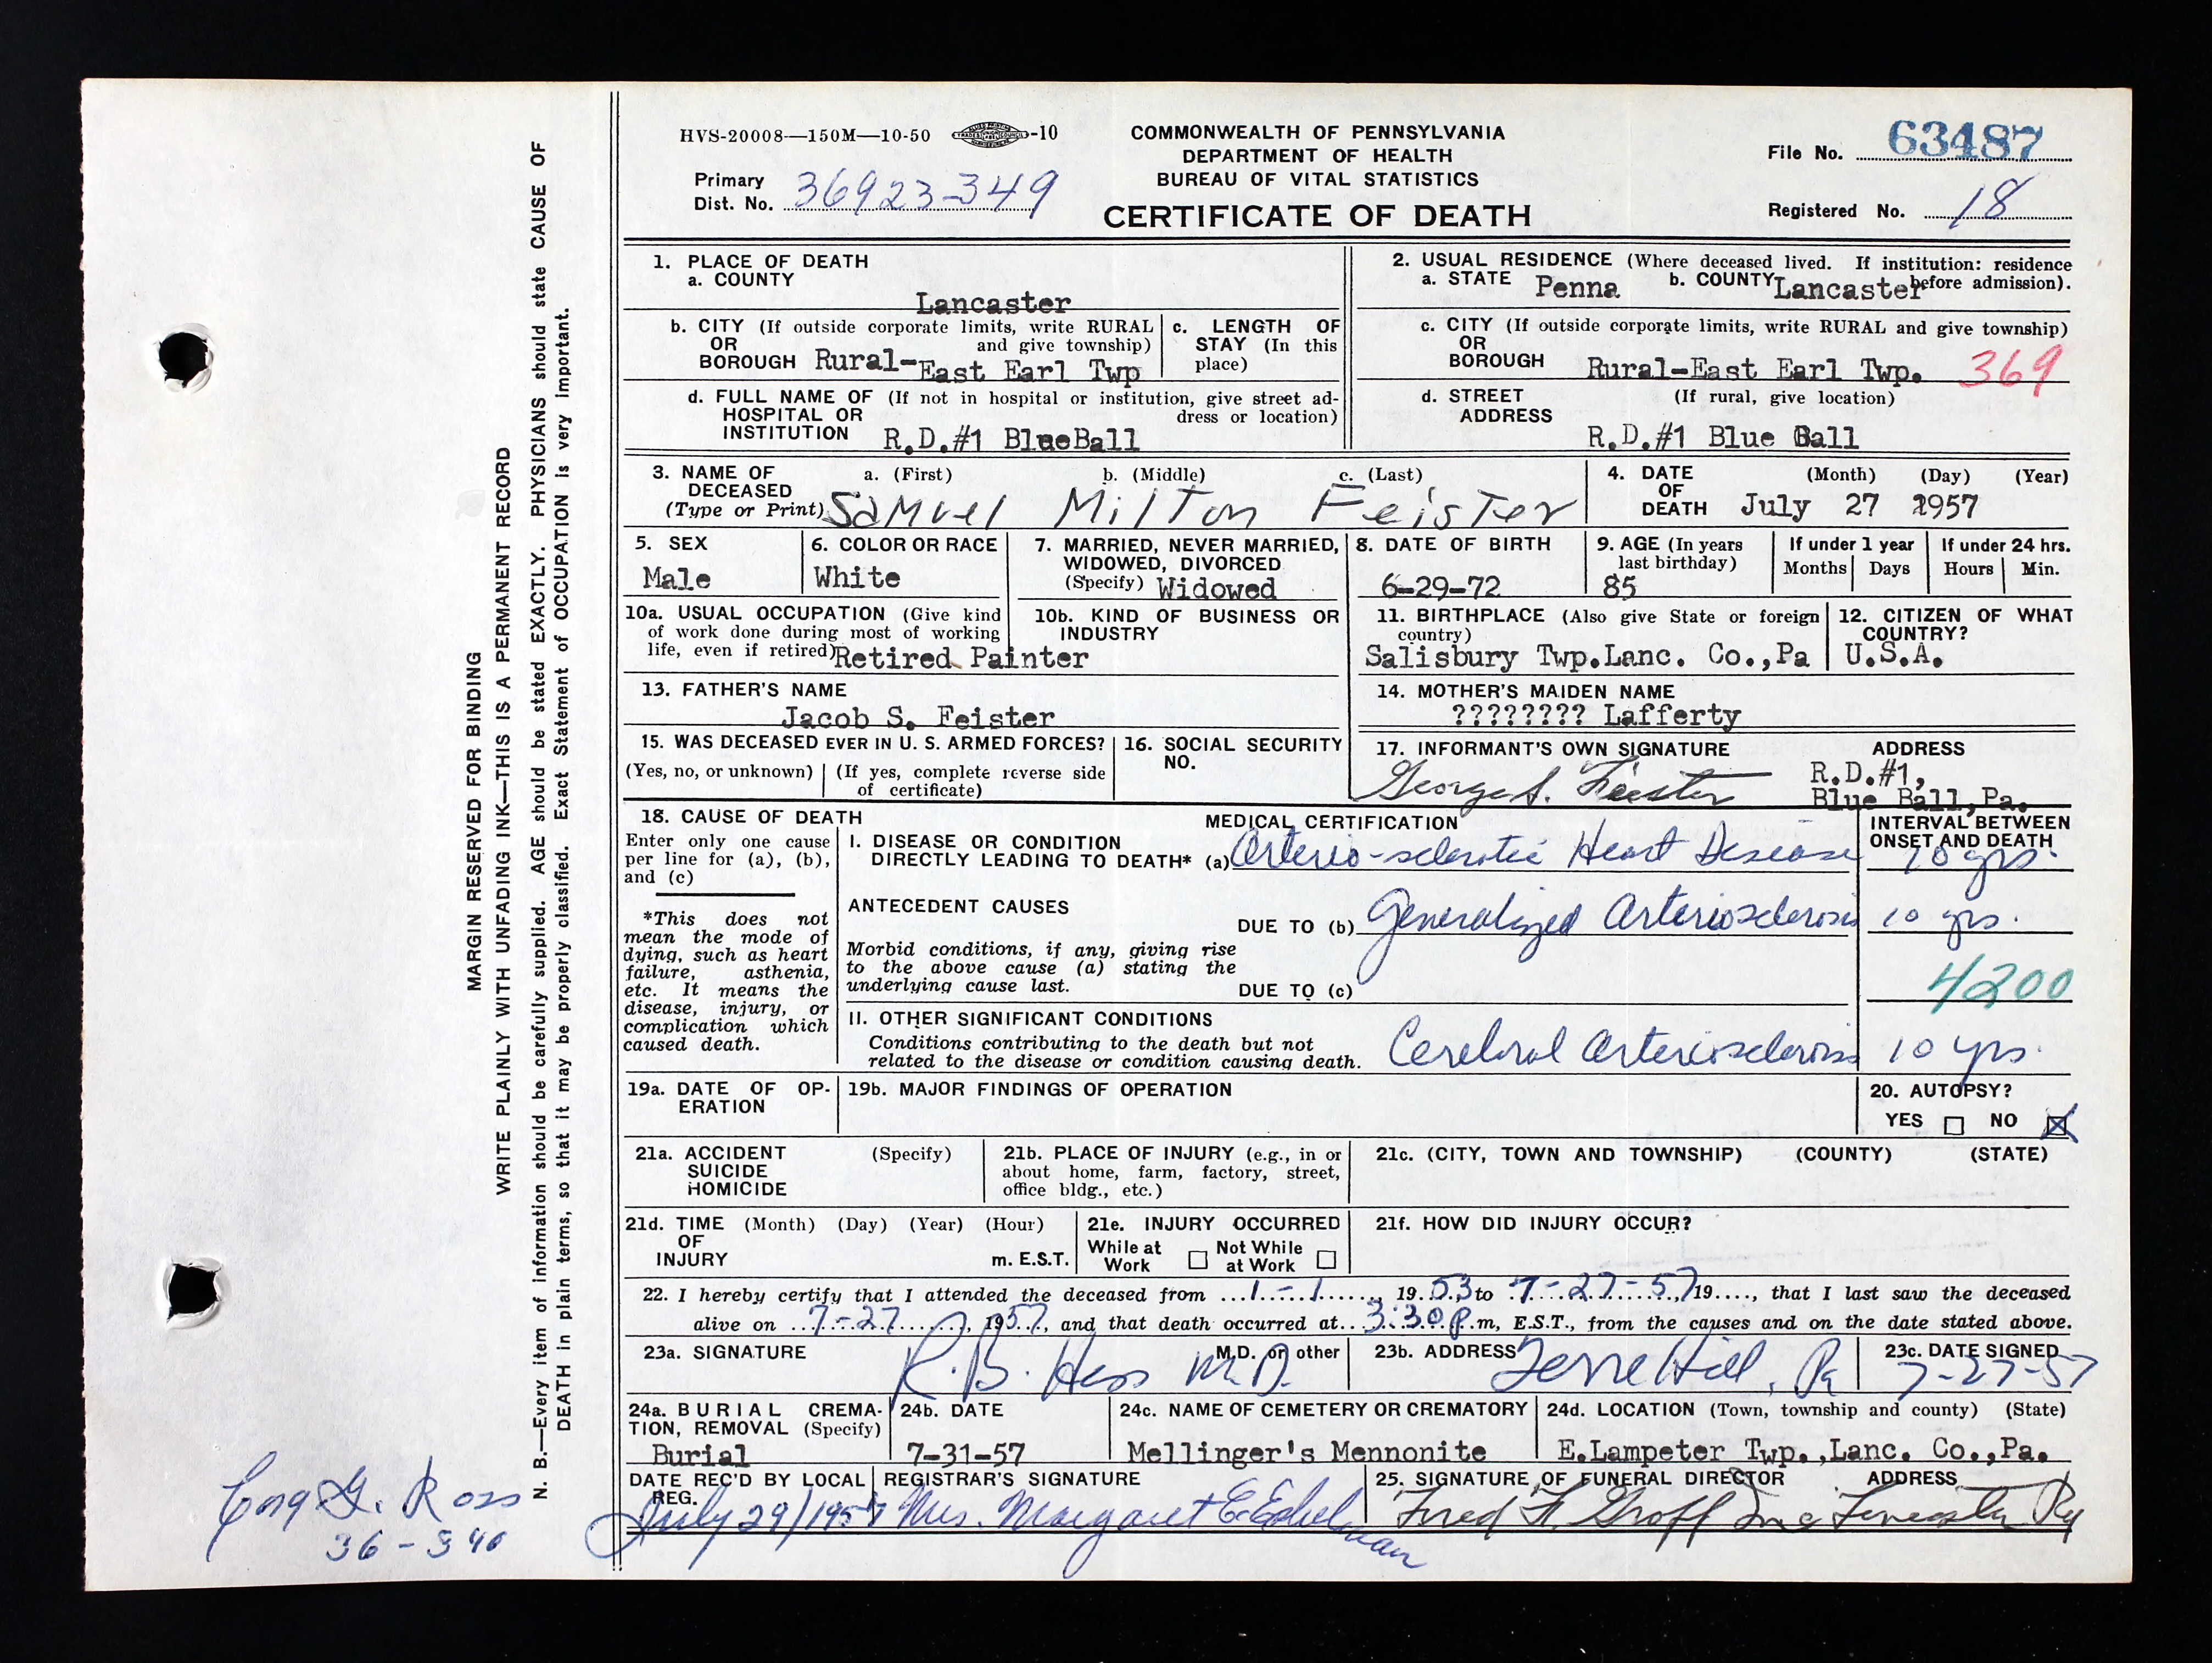 MARGIN RESERVED FOR BINDING
WRITE PLAINLY WITH UNFADING INK—THIS IS A PERMANENT RECORD
N. B.—Every item of information should be carefully supplied. AGE should be stated EXACTLY. PHYSICIANS should state CAUSE OF
DEATH in plain terms, so that it may be properly classified. Exact Statement of OCCUPATION is very important.
HVS-20008—150M—10-50 -10
COMMONWEALTH OF PENNSYLVANIA
DEPARTMENT OF HEALTH
BUREAU OF VITAL STATISTICS
CERTIFICATE OF DEATH
File No. 63487
Primary
Dist. No. 36923-349
Registered No. 18
1. PLACE OF DEATH
a. COUNTY
Lancaster
2. USUAL RESIDENCE (Where deceased lived. If institution: residence
a. STATE Penna b. COUNTY Lancaster before admission).
b. CITY (If outside corporate limits, write RURAL
OR and give township)
BOROUGH Rural-East Earl Twp
c. LENGTH OF
STAY (In this
place)
c. CITY (If outside corporate limits, write RURAL and give township)
OR
BOROUGH Rural-East Earl Twp. 369
d. FULL NAME OF (If not in hospital or institution, give street ad-
HOSPITAL OR dress or location)
INSTITUTION R.D.#1 BlueBall
d. STREET (If rural, give location)
ADDRESS
R.D.#1 Blue Ball
3. NAME OF a. (First) b. (Middle) c. (Last)
DECEASED
(Type or Print) Samuel Milton Feister
4. DATE (Month) (Day) (Year)
OF
DEATH July 27 1957
5. SEX
Male
6. COLOR OR RACE
White
7. MARRIED, NEVER MARRIED,
WIDOWED, DIVORCED
(Specify) Widowed
8. DATE OF BIRTH
6-29-72
9. AGE (In years
last birthday)
85
If under 1 year
Months Days
If under 24 hrs.
Hours Min.
10a. USUAL OCCUPATION (Give kind
of work done during most of working
life, even if retired) Retired Painter
10b. KIND OF BUSINESS OR
INDUSTRY
11. BIRTHPLACE (Also give State or foreign
country)
Salisbury Twp.Lanc. Co.,Pa
12. CITIZEN OF WHAT
COUNTRY?
U.S.A.
13. FATHER'S NAME
Jacob S. Feister
14. MOTHER'S MAIDEN NAME
???????? Lafferty
15. WAS DECEASED EVER IN U. S. ARMED FORCES?
(Yes, no, or unknown) (If yes, complete reverse side
of certificate)
16. SOCIAL SECURITY
NO.
17. INFORMANT'S OWN SIGNATURE ADDRESS
George S. Feister R.D.#1,
Blue Ball,Pa.
18. CAUSE OF DEATH
Enter only one cause
per line for (a), (b),
and (c)
*This does not
mean the mode of
dying, such as heart
failure, asthenia,
etc. It means the
disease, injury, or
complication which
caused death.
MEDICAL CERTIFICATION
INTERVAL BETWEEN
ONSET AND DEATH
I. DISEASE OR CONDITION
DIRECTLY LEADING TO DEATH* (a) Arterio-sclerotic Heart Disease 10 yrs.
ANTECEDENT CAUSES
DUE TO (b) Generalized Arteriosclerosis 10 yrs.
Morbid conditions, if any, giving rise
to the above cause (a) stating the
underlying cause last.
DUE TO (c)
4200
II. OTHER SIGNIFICANT CONDITIONS
Conditions contributing to the death but not
related to the disease or condition causing death. Cerebral Arteriosclerosis 10 yrs.
19a. DATE OF OP-
ERATION
19b. MAJOR FINDINGS OF OPERATION
20. AUTOPSY?
YES NO X
21a. ACCIDENT (Specify)
SUICIDE
HOMICIDE
21b. PLACE OF INJURY (e.g., in or
about home, farm, factory, street,
office bldg., etc.)
21c. (CITY, TOWN AND TOWNSHIP) (COUNTY) (STATE)
21d. TIME (Month) (Day) (Year) (Hour)
OF
INJURY m. E.S.T.
21e. INJURY OCCURRED
While at Work Not While at Work
21f. HOW DID INJURY OCCUR?
22. I hereby certify that I attended the deceased from 1-1, 1953, to 7-27-57, 19...., that I last saw the deceased
alive on 7-27, 1957, and that death occurred at 3:30 P.m, E.S.T., from the causes and on the date stated above.
23a. SIGNATURE M.D. or other
R.B. Hess M.D.
23b. ADDRESS
Terre Hill, Pa
23c. DATE SIGNED
7-27-57
24a. BURIAL CREMA-
TION, REMOVAL (Specify)
Burial
24b. DATE
7-31-57
24c. NAME OF CEMETERY OR CREMATORY
Mellinger's Mennonite
24d. LOCATION (Town, township and county) (State)
E.Lampeter Twp.,Lanc. Co.,Pa.
DATE REC'D BY LOCAL
REG.
July 29/1957
REGISTRAR'S SIGNATURE
Mrs. Margaret E. Eshelman
25. SIGNATURE OF FUNERAL DIRECTOR ADDRESS
Fred F. Groff Inc Lancaster Pa
G. Ross